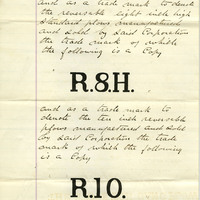 and as a trade mark to denote
the reversable eight inch high
standard plows manufactured
and sold by said Corporation
the trade mark of which
the following is a Copy
R.8.H.
and as a trade mark to
denote the ten inch reversable
plows manufactured and sold
by said Corporation the trade
mark of which the following
is a Copy
R.10.